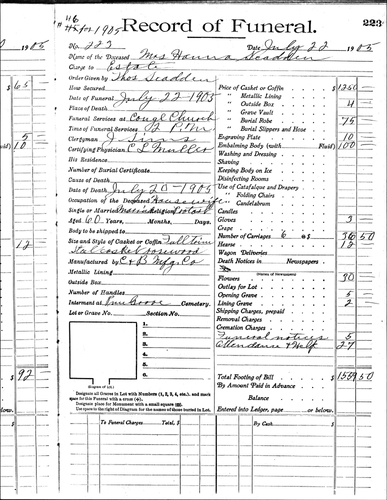 #46
1905
Record of Funeral.
223
No. 222 Date July 22 1905
Name of the Deceased Mrs Hanna Scadden
Charge to Estate
Order Given by Thos Scadden
How Secured
Date of Funeral July 22 1905
Place of Death
Funeral Services at Congl Church
Time of Funeral Services 2 P.M.
Clergyman J.
Certifying Physician C L Muller
His Residence
Number of Burial Certificate
Cause of Death
Date of Death July 20 - 1905
Occupation of the Deceased Housewife
Single or Married Religion
Aged 60 Years, Months, Days.
Body to be shipped to
Size and Style of Casket or Coffin Full Trim
casket rosewood
Manufactured by C & B Mfg Co
Metallic Lining
Outside Box
Number of Handles
Interment at Cemetery.
Lot or Grave No. Section No.
1.
2.
3.
4.
5.
6.
(Diagram of Lot.)
Designate all Graves in Lot with Numbers (1, 2, 3, 4, etc.), and mark
span for this Funeral with a cross (+).
Designate place for Monument with a small square
Use space to the right of Diagram for the names of those buried in Lot.
Price of Casket or Coffin $1250
" Metallic Lining
" Outside Box 4
" Grave Vault
" Burial Robe 75
" Burial Slippers and Hose
Engraving Plate 10
Embalming Body (with Fluid) 100
Washing and Dressing
Shaving
Keeping Body on Ice
Disinfecting Rooms
Use of Catafalque and Drapery
" Folding Chairs
" Candelabrum
Candles
Gloves 3
Crape
Number of Carriages 6 @ $ 36 50
Hearse 12
Wagon Deliveries
Death Notices in Newspapers
(Names of Newspapers)
Flowers 30
Outlay for Lot
Opening Grave 5
Lining Grave 2
Shipping Charges, prepaid
Removal Charges
Cremation Charges
Funeral notices 5
Attendance & Help 27
Total Footing of Bill $1559 50
By Amount Paid in Advance
Balance
Entered into Ledger, page or below.
To Funeral Charges Total, $
By Cash $